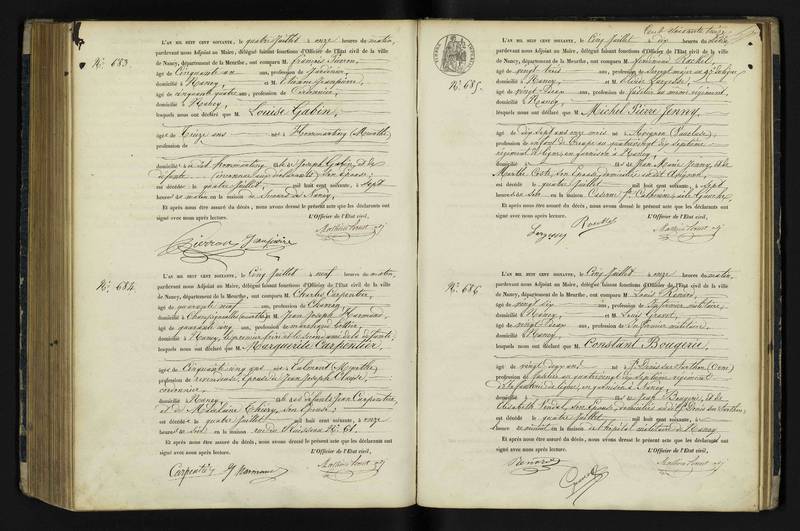 N° 683.
L'AN MIL HUIT CENT SOIXANTE, le quatre Juillet à onze heures du matin,
pardevant nous Adjoint au Maire, délégué faisant fonctions d'Officier de l'État civil de la ville
de Nancy, département de la Meurthe, ont comparu M. François
âgé de cinquante un ans, profession de Jardinier,
domicilié à Nancy, et M.
âgé de cinquante quatre ans, profession de Cordonnier,
domicilié à Nancy,
lesquels nous ont déclaré que M. Louise Gabin,
âgé de treize ans né à Hommarting (Meurthe)
profession de
domicilié à Hommarting et de Joseph Gabin, et de
défunte son épouse,
est décédé le quatre Juillet, mil huit cent soixante, à sept
heures du matin en la maison de Secours de Nancy,
Et après nous être assuré du décès, nous avons dressé le présent acte que les déclarants ont
signé avec nous après lecture. L'Officier de l'État civil,
N° 684.
L'AN MIL HUIT CENT SOIXANTE, le Cinq Juillet à neuf heures du matin,
pardevant nous Adjoint au Maire, délégué faisant fonctions d'Officier de l'État civil de la ville
de Nancy, département de la Meurthe, ont comparu M. Charles Carpentier,
âgé de quarante neuf ans, profession de
domicilié à Champigneulles (Meurthe) et M. Jean Joseph Marmand
âgé de quarante cinq ans, profession de
domicilié à Nancy, le premier frère et le second ami de la défunte,
lesquels nous ont déclaré que M. Marguerite Carpentier,
âgé de Cinquante cinq ans né à (Meurthe)
profession de revendeuse, épouse de Jean Joseph
cordonnier
domicilié à Nancy, et de défunts Jean Carpentier
et de Madelaine Thiery, son épouse,
est décédé le quatre Juillet mil huit cent soixante, à onze
heures du soir en la maison rue du Ruisseau N° 61.
Et après nous être assuré du décès, nous avons dressé le présent acte que les déclarants ont
signé avec nous après lecture. L'Officier de l'État civil,
Carpentier
Cent soixante treize
N° 685.
L'AN MIL HUIT CENT SOIXANTE, le Cinq Juillet à dix heures du matin
pardevant nous Adjoint au Maire, délégué faisant fonctions d'Officier de l'État civil de la ville
de Nancy, département de la Meurthe, ont comparu M. Ferdinand
âgé de vingt trois ans, profession de Sergent major au 97e de ligne
domicilié à Nancy, et M.
âgé de vingt deux ans, profession de fusilier au même régiment,
domicilié à Nancy,
lesquels nous ont déclaré que M. Michel Pierre Jenny,
âgé de dix sept ans onze mois né à Avignon (Vaucluse),
profession de enfant de troupe au quatrevingt dix septième
régiment de ligne, en garnison à Nancy,
et de Jean Marie Jenny, et de
Marthe Coste, son épouse, domiciliés au dit Avignon,
est décédé le quatre Juillet, mil huit cent soixante, à sept
heures du soir en la maison Caserne Ste Catherine,
Et après nous être assuré du décès, nous avons dressé le présent acte que les déclarants ont
signé avec nous après lecture. L'Officier de l'État civil,
N° 686
L'AN MIL HUIT CENT SOIXANTE, le Cinq Juillet à onze heures du matin,
pardevant nous Adjoint au Maire, délégué faisant fonctions d'Officier de l'État civil de la ville
de Nancy, département de la Meurthe, ont comparu M. Louis Renard,
âgé de vingt six ans, profession de Infirmier militaire
domicilié à Nancy, et M. Louis
âgé de vingt deux ans, profession de Infirmier militaire,
domicilié à Nancy,
lesquels nous ont déclaré que M. Constant Bougerie,
âgé de vingt deux ans né à St Denis sur Sarthon (Orne)
profession de fusilier au quatrevingt dix septième régiment
d'infanterie de ligne, en garnison à Nancy,
domicilié à et de Jean Bougerie, et de
Elisabeth son épouse, domiciliés au dit St Denis sur Sarthon,
est décédé le quatre Juillet mil huit cent soixante, à
heure de minuit en la maison de l'hôpital militaire de Nancy
Et après nous être assuré du décès, nous avons dressé le présent acte que les déclarants ont
signé avec nous après lecture. L'Officier de l'État civil,
Renard